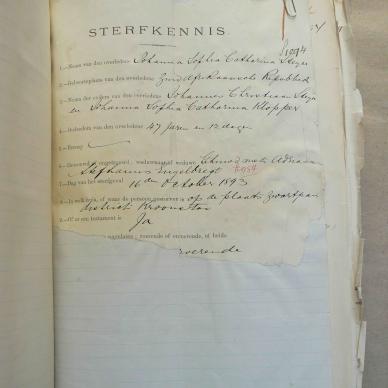 1094
STERFKENNIS.
1.—Naam van den overledene Johanna Sophia Catharina Steyn
2.—Geboorteplaats van den overledene Zuid Afrikaansche Republiek
3.—Naam der ouders van den overledene Johannes Christiaan Steyn
en Johanna Sophia Catharina Klopper
4.—Ouderdom van den overledene 47 jaren en 12 dagen
5.—Beroep
6.—Getrouwd of ongetrouwd, weduwnaar of weduwe Getrouwd met Adriaan
Stefhanus Engelbregt
7.—Dag van het sterfgeval 16de October 1893
8.—In welk huis, of waar de persoon gestorven is op de plaats Zwartpan
district Kroonstad
9.—Of er een testament is Ja
nagelaten: roerende of onroerende, of beide
roerende